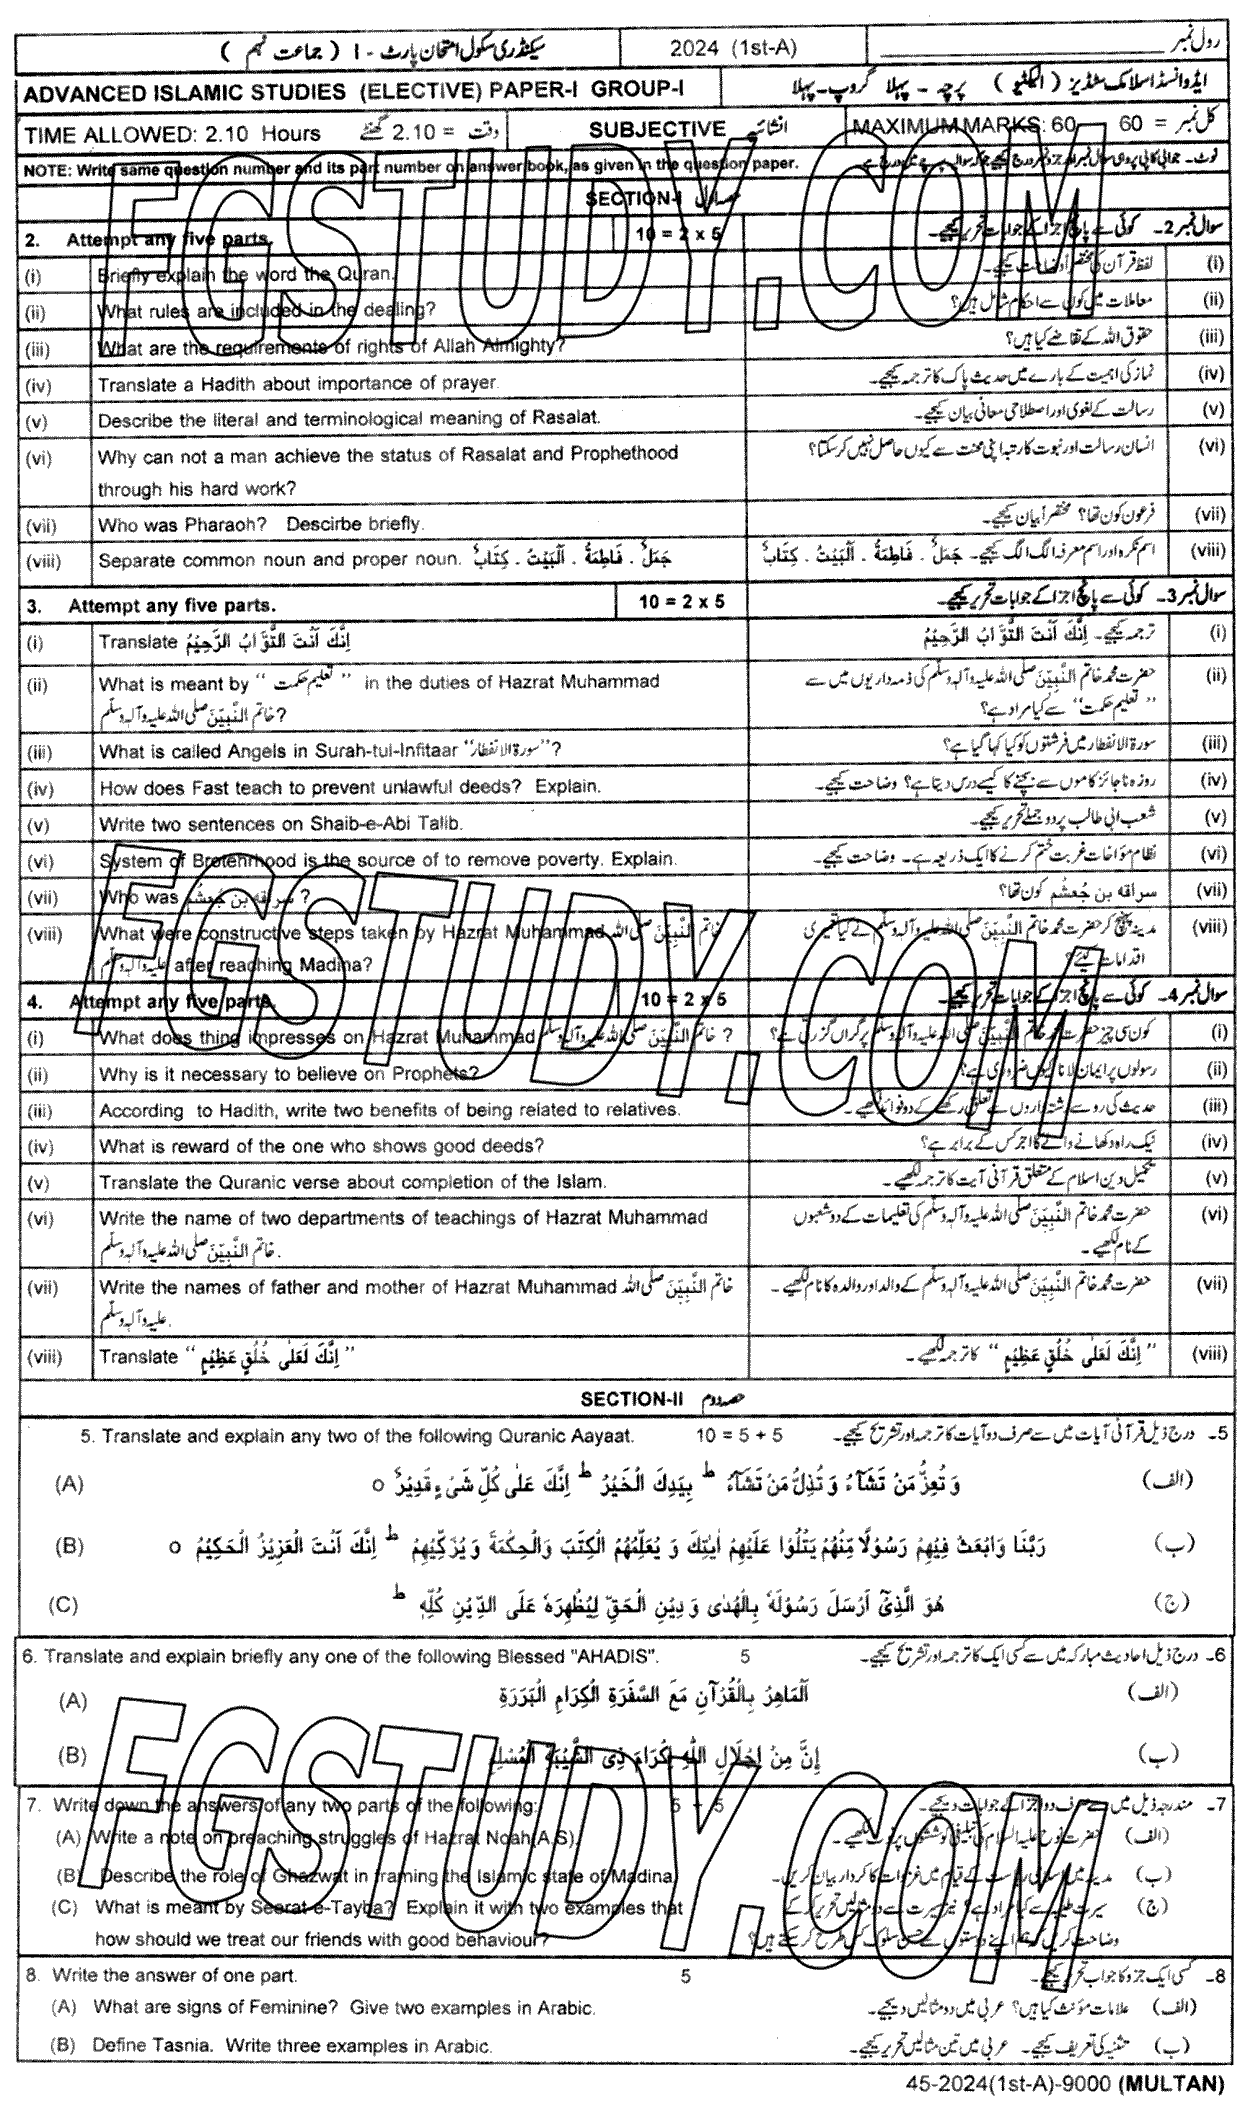 سیکنڈری سکول امتحان پارٹ - I ( جماعت نہم ) 2024 (1st-A) رول نمبر
ADVANCED ISLAMIC STUDIES (ELECTIVE) PAPER-I GROUP-I ایڈوانسڈ اسلامک سٹڈیز ( الیکٹو ) پرچہ - پہلا گروپ - پہلا
TIME ALLOWED: 2.10 Hours وقت = 2.10 گھنٹے SUBJECTIVE انشائیہ MAXIMUM MARKS: 60 کل نمبر = 60
NOTE: Write same question number and its part number on answer book, as given in the question paper. نوٹ - جوابی کاپی پر وہی سوال نمبر اور جزو نمبر درج کیجیے جو کہ سوالیہ پرچے میں درج ہے -
SECTION-I حصہ اول
2. Attempt any five parts. 10 = 2 x 5 سوال نمبر 2- کوئی سے پانچ اجزا کے جوابات تحریر کیجیے -
(i) Briefly explain the word the Quran. لفظ قرآن کی مختصراً وضاحت کیجیے - (i)
(ii) What rules are included in the dealing? معاملات میں کون سے احکام شامل ہیں؟ (ii)
(iii) What are the requirements of rights of Allah Almighty? حقوق اللہ کے تقاضے کیا ہیں؟ (iii)
(iv) Translate a Hadith about importance of prayer. نماز کی اہمیت کے بارے میں حدیث پاک کا ترجمہ کیجیے - (iv)
(v) Describe the literal and terminological meaning of Rasalat. رسالت کے لغوی اور اصطلاحی معانی بیان کیجیے - (v)
(vi) Why can not a man achieve the status of Rasalat and Prophethood انسان رسالت اور نبوت کا رتبہ اپنی محنت سے کیوں حاصل نہیں کر سکتا؟ (vi)
through his hard work?
(vii) Who was Pharaoh? Descirbe briefly. فرعون کون تھا؟ مختصراً بیان کیجیے - (vii)
(viii) Separate common noun and proper noun. جَمَلٌ . فَاطِمَةُ . اَلْبَيْتُ . كِتَابٌ اسم نکرہ اور اسم معرفہ الگ الگ کیجیے - جَمَلٌ . فَاطِمَةُ . اَلْبَيْتُ . كِتَابٌ (viii)
3. Attempt any five parts. 10 = 2 x 5 سوال نمبر 3- کوئی سے پانچ اجزا کے جوابات تحریر کیجیے -
(i) Translate اِنَّكَ اَنْتَ التَّوَّابُ الرَّحِيْمُ ترجمہ کیجیے - اِنَّكَ اَنْتَ التَّوَّابُ الرَّحِيْمُ (i)
(ii) What is meant by “ تعلیم حکمت ” in the duties of Hazrat Muhammad حضرت محمد خاتم النَّبِيّٖنَ صلی اللہ علیہ وآلہ وسلم کی ذمہ داریوں میں سے (ii)
خاتم النَّبِيّٖنَ صلی اللہ علیہ وآلہ وسلم? “ تعلیم حکمت ” سے کیا مراد ہے؟
(iii) What is called Angels in Surah-tul-Infitaar “سورۃ الانفطار”? سورۃ الانفطار میں فرشتوں کو کیا کہا گیا ہے؟ (iii)
(iv) How does Fast teach to prevent unlawful deeds? Explain. روزہ ناجائز کاموں سے بچنے کا کیسے درس دیتا ہے؟ وضاحت کیجیے - (iv)
(v) Write two sentences on Shaib-e-Abi Talib. شعب ابی طالب پر دو جملے تحریر کیجیے - (v)
(vi) System of Brotehrhood is the source of to remove poverty. Explain. نظام مؤاخات غربت ختم کرنے کا ایک ذریعہ ہے - وضاحت کیجیے - (vi)
(vii) Who was سراقه بن جُعشُم ? سراقه بن جُعشُم کون تھا؟ (vii)
(viii) What were constructive steps taken by Hazrat Muhammad خاتم النَّبِيّٖنَ صلی اللہ مدینہ پہنچ کر حضرت محمد خاتم النَّبِيّٖنَ صلی اللہ علیہ وآلہ وسلم نے کیا تعمیری (viii)
علیہ وآلہ وسلم after reaching Madina? اقدامات کیے؟
4. Attempt any five parts. 10 = 2 x 5 سوال نمبر 4- کوئی سے پانچ اجزا کے جوابات تحریر کیجیے -
(i) What does thing impresses on Hazrat Muhammad خاتم النَّبِيّٖنَ صلی اللہ علیہ وآلہ وسلم ? کون سی چیز حضرت محمد خاتم النَّبِيّٖنَ صلی اللہ علیہ وآلہ وسلم پر گراں گزرتی ہے؟ (i)
(ii) Why is it necessary to believe on Prophets? رسولوں پر ایمان لانا کیوں ضروری ہے؟ (ii)
(iii) According to Hadith, write two benefits of being related to relatives. حدیث کی رو سے رشتہ داروں سے تعلق رکھنے کے دو فوائد لکھیے - (iii)
(iv) What is reward of the one who shows good deeds? نیک راہ دکھانے والے کا اجر کس کے برابر ہے؟ (iv)
(v) Translate the Quranic verse about completion of the Islam. تکمیل دین اسلام کے متعلق قرآنی آیت کا ترجمہ لکھیے - (v)
(vi) Write the name of two departments of teachings of Hazrat Muhammad حضرت محمد خاتم النَّبِيّٖنَ صلی اللہ علیہ وآلہ وسلم کی تعلیمات کے دو شعبوں (vi)
خاتم النَّبِيّٖنَ صلی اللہ علیہ وآلہ وسلم. کے نام لکھیے -
(vii) Write the names of father and mother of Hazrat Muhammad خاتم النَّبِيّٖنَ صلی اللہ حضرت محمد خاتم النَّبِيّٖنَ صلی اللہ علیہ وآلہ وسلم کے والد اور والدہ کا نام لکھیے - (vii)
علیہ وآلہ وسلم.
(viii) Translate “ اِنَّكَ لَعَلٰى خُلُقٍ عَظِيْمٍ ” “ اِنَّكَ لَعَلٰى خُلُقٍ عَظِيْمٍ ” کا ترجمہ لکھیے - (viii)
SECTION-II حصہ دوم
5. Translate and explain any two of the following Quranic Aayaat. 10 = 5 + 5 5- درج ذیل قرآنی آیات میں سے صرف دو آیات کا ترجمہ اور تشریح کیجیے -
(A) وَ تُعِزُّ مَنْ تَشَآءُ وَ تُذِلُّ مَنْ تَشَآءُ ط بِيَدِكَ الْخَيْرُ ط اِنَّكَ عَلٰى كُلِّ شَىْءٍ قَدِيْرٌ o (الف)
(B) رَبَّنَا وَابْعَثْ فِيْهِمْ رَسُوْلًا مِّنْهُمْ يَتْلُوْا عَلَيْهِمْ اٰيٰتِكَ وَ يُعَلِّمُهُمُ الْكِتٰبَ وَالْحِكْمَةَ وَ يُزَكِّيْهِمْ ط اِنَّكَ اَنْتَ الْعَزِيْزُ الْحَكِيْمُ o (ب)
(C) هُوَ الَّذِىْٓ اَرْسَلَ رَسُوْلَهٗ بِالْهُدٰى وَ دِيْنِ الْحَقِّ لِيُظْهِرَهٗ عَلَى الدِّيْنِ كُلِّهٖ ط (ج)
6. Translate and explain briefly any one of the following Blessed "AHADIS". 5 6- درج ذیل احادیث مبارکہ میں سے کسی ایک کا ترجمہ اور تشریح کیجیے -
(A) اَلْمَاهِرُ بِالْقُرْآنِ مَعَ السَّفَرَةِ الْكِرَامِ الْبَرَرَةِ (الف)
(B) إِنَّ مِنْ إِجْلَالِ اللّٰهِ إِكْرَامَ ذِى الشَّيْبَةِ الْمُسْلِمِ (ب)
7. Write down the answers of any two parts of the following: 5 + 5 7- مندرجہ ذیل میں سے صرف دو اجزا کے جوابات دیجیے -
(A) Write a note on preaching struggles of Hazrat Noah(A.S). حضرت نوح علیہ السلام کی تبلیغی کوششوں پر نوٹ لکھیے - (الف)
(B) Describe the role of Ghazwat in framing the Islamic state of Madina. مدینہ میں اسلامی ریاست کے قیام میں غزوات کا کردار بیان کریں - (ب)
(C) What is meant by Seerat-e-Tayba? Explain it with two examples that سیرت طیبہ سے کیا مراد ہے؟ نیز سیرت سے دو مثالیں تحریر کر کے (ج)
how should we treat our friends with good behaviour? وضاحت کریں کہ ہم اپنے دوستوں سے حسن سلوک کس طرح کر سکتے ہیں؟
8. Write the answer of one part. 5 8- کسی ایک جزو کا جواب تحریر کیجیے -
(A) What are signs of Feminine? Give two examples in Arabic. علامات مؤنث کیا ہیں؟ عربی میں دو مثالیں دیجیے - (الف)
(B) Define Tasnia. Write three examples in Arabic. تثنیہ کی تعریف کیجیے - عربی میں تین مثالیں تحریر کیجیے - (ب)
45-2024(1st-A)-9000 (MULTAN)
FGSTUDY.COM
FGSTUDY.COM
FGSTUDY.COM